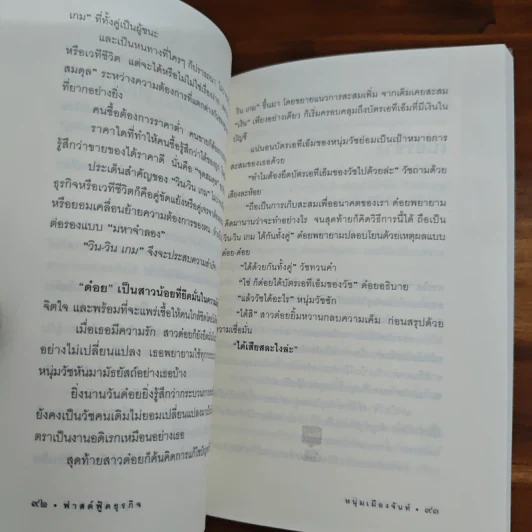 เกม” ที่ทั้งคู่เป็นผู้ชนะ
และเป็นหนทางที่ใครๆ ก็ปรารถนา
หรือเวทีชีวิต แต่จะได้หรือไม่ไม่ใช่เรื่อง
สมดุล” ระหว่างความต้องการที่แตกต่าง
ที่ยากอย่างยิ่ง
คนซื้อต้องการราคาต่ำ คนขายก็ต้องการ
ราคาใดที่ทำให้คนซื้อรู้สึกว่าได้ของ
รู้สึกว่าขายของได้ราคาดี นั่นคือ
ประเด็นสำคัญของ “วิน-วิน เกม”
ธุรกิจหรือเวทีชีวิตก็คือคู่ขัดแย้งหรือคู่เจรจา
หรือยอมเคลื่อนย้ายความต้องการของตน
ต่อรองแบบ “มหาจำลอง”
“วิน-วิน เกม” จึงจะประสบความสำเร็จ
“ด๋อย” เป็นสาวน้อยที่ยึดมั่นใน
จิตใจ และพร้อมที่จะแพร่เชื้อให้คนใกล้ชิด
เมื่อเธอมีความรัก สาวด๋อยก็ยัง
อย่างไม่เปลี่ยนแปลง เธอพยายามใช้ทุก
หนุ่มวัชหันมามัธยัสถ์อย่างเธอบ้าง
ยิ่งนานวันด๋อยยิ่งรู้สึกว่ากระบวนการ
ยังคงเป็นวัชคนเดิมไม่ยอมเปลี่ยนแปลง
ตราเป็นงานอดิเรกเหมือนอย่างเธอ
สุดท้ายสาวด๋อยก็ค้นคิดการแก้ไข
๙๒ • ฟาสต์ฟู้ดธุรกิจ
วิน เกม” ขึ้นมา โดยขยายแนวการสะสมเพิ่ม จากเดิมเคยสะสม
“เงิน” เพียงอย่างเดียว ก็เริ่มครอบคลุมถึงบัตรเอทีเอ็มที่มีเงินใน
บัญชี
แน่นอนบัตรเอทีเอ็มของหนุ่มวัชย่อมเป็นเป้าหมายการ
สะสมของเธอด้วย
“ทำไมต้องยึดบัตรเอทีเอ็มของวัชไปด้วยล่ะ” วัชถามด้วย
เสียงละห้อย
“ถือเป็นการเก็บสะสมเพื่ออนาคตของเรา ด๋อยพยายาม
คิดมานานว่าจะทำอย่างไร จนสุดท้ายก็คิดวิธีการนี้ได้ ถือเป็น
วิน-วิน เกม ได้กันทั้งคู่” ด๋อยพยายามปลอบโยนด้วยเหตุผลแบบ
ด๋อย-ด๋อย
“ได้ด้วยกันทั้งคู่” วัชทวนคำ
“ใช่ ก็ด๋อยได้บัตรเอทีเอ็มของวัช” ด๋อยอธิบาย
“แล้ววัชได้อะไร” หนุ่มวัชซัก
“ได้สิ” สาวด๋อยยิ้มหวานกลบความเค็ม ก่อนสรุปด้วย
ความเชื่อมั่น
“ได้เสียสละไงล่ะ”
หนุ่มเมืองจันท์ • ๙๓